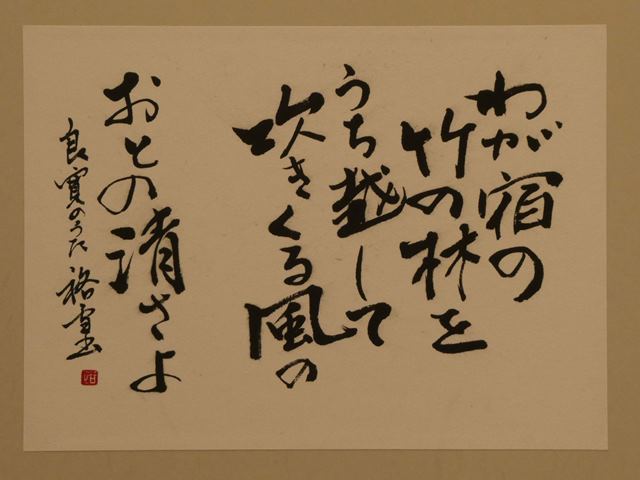 わが宿の
竹の林を
うち越して
吹きくる風の
おとの清さよ
良寛のうた